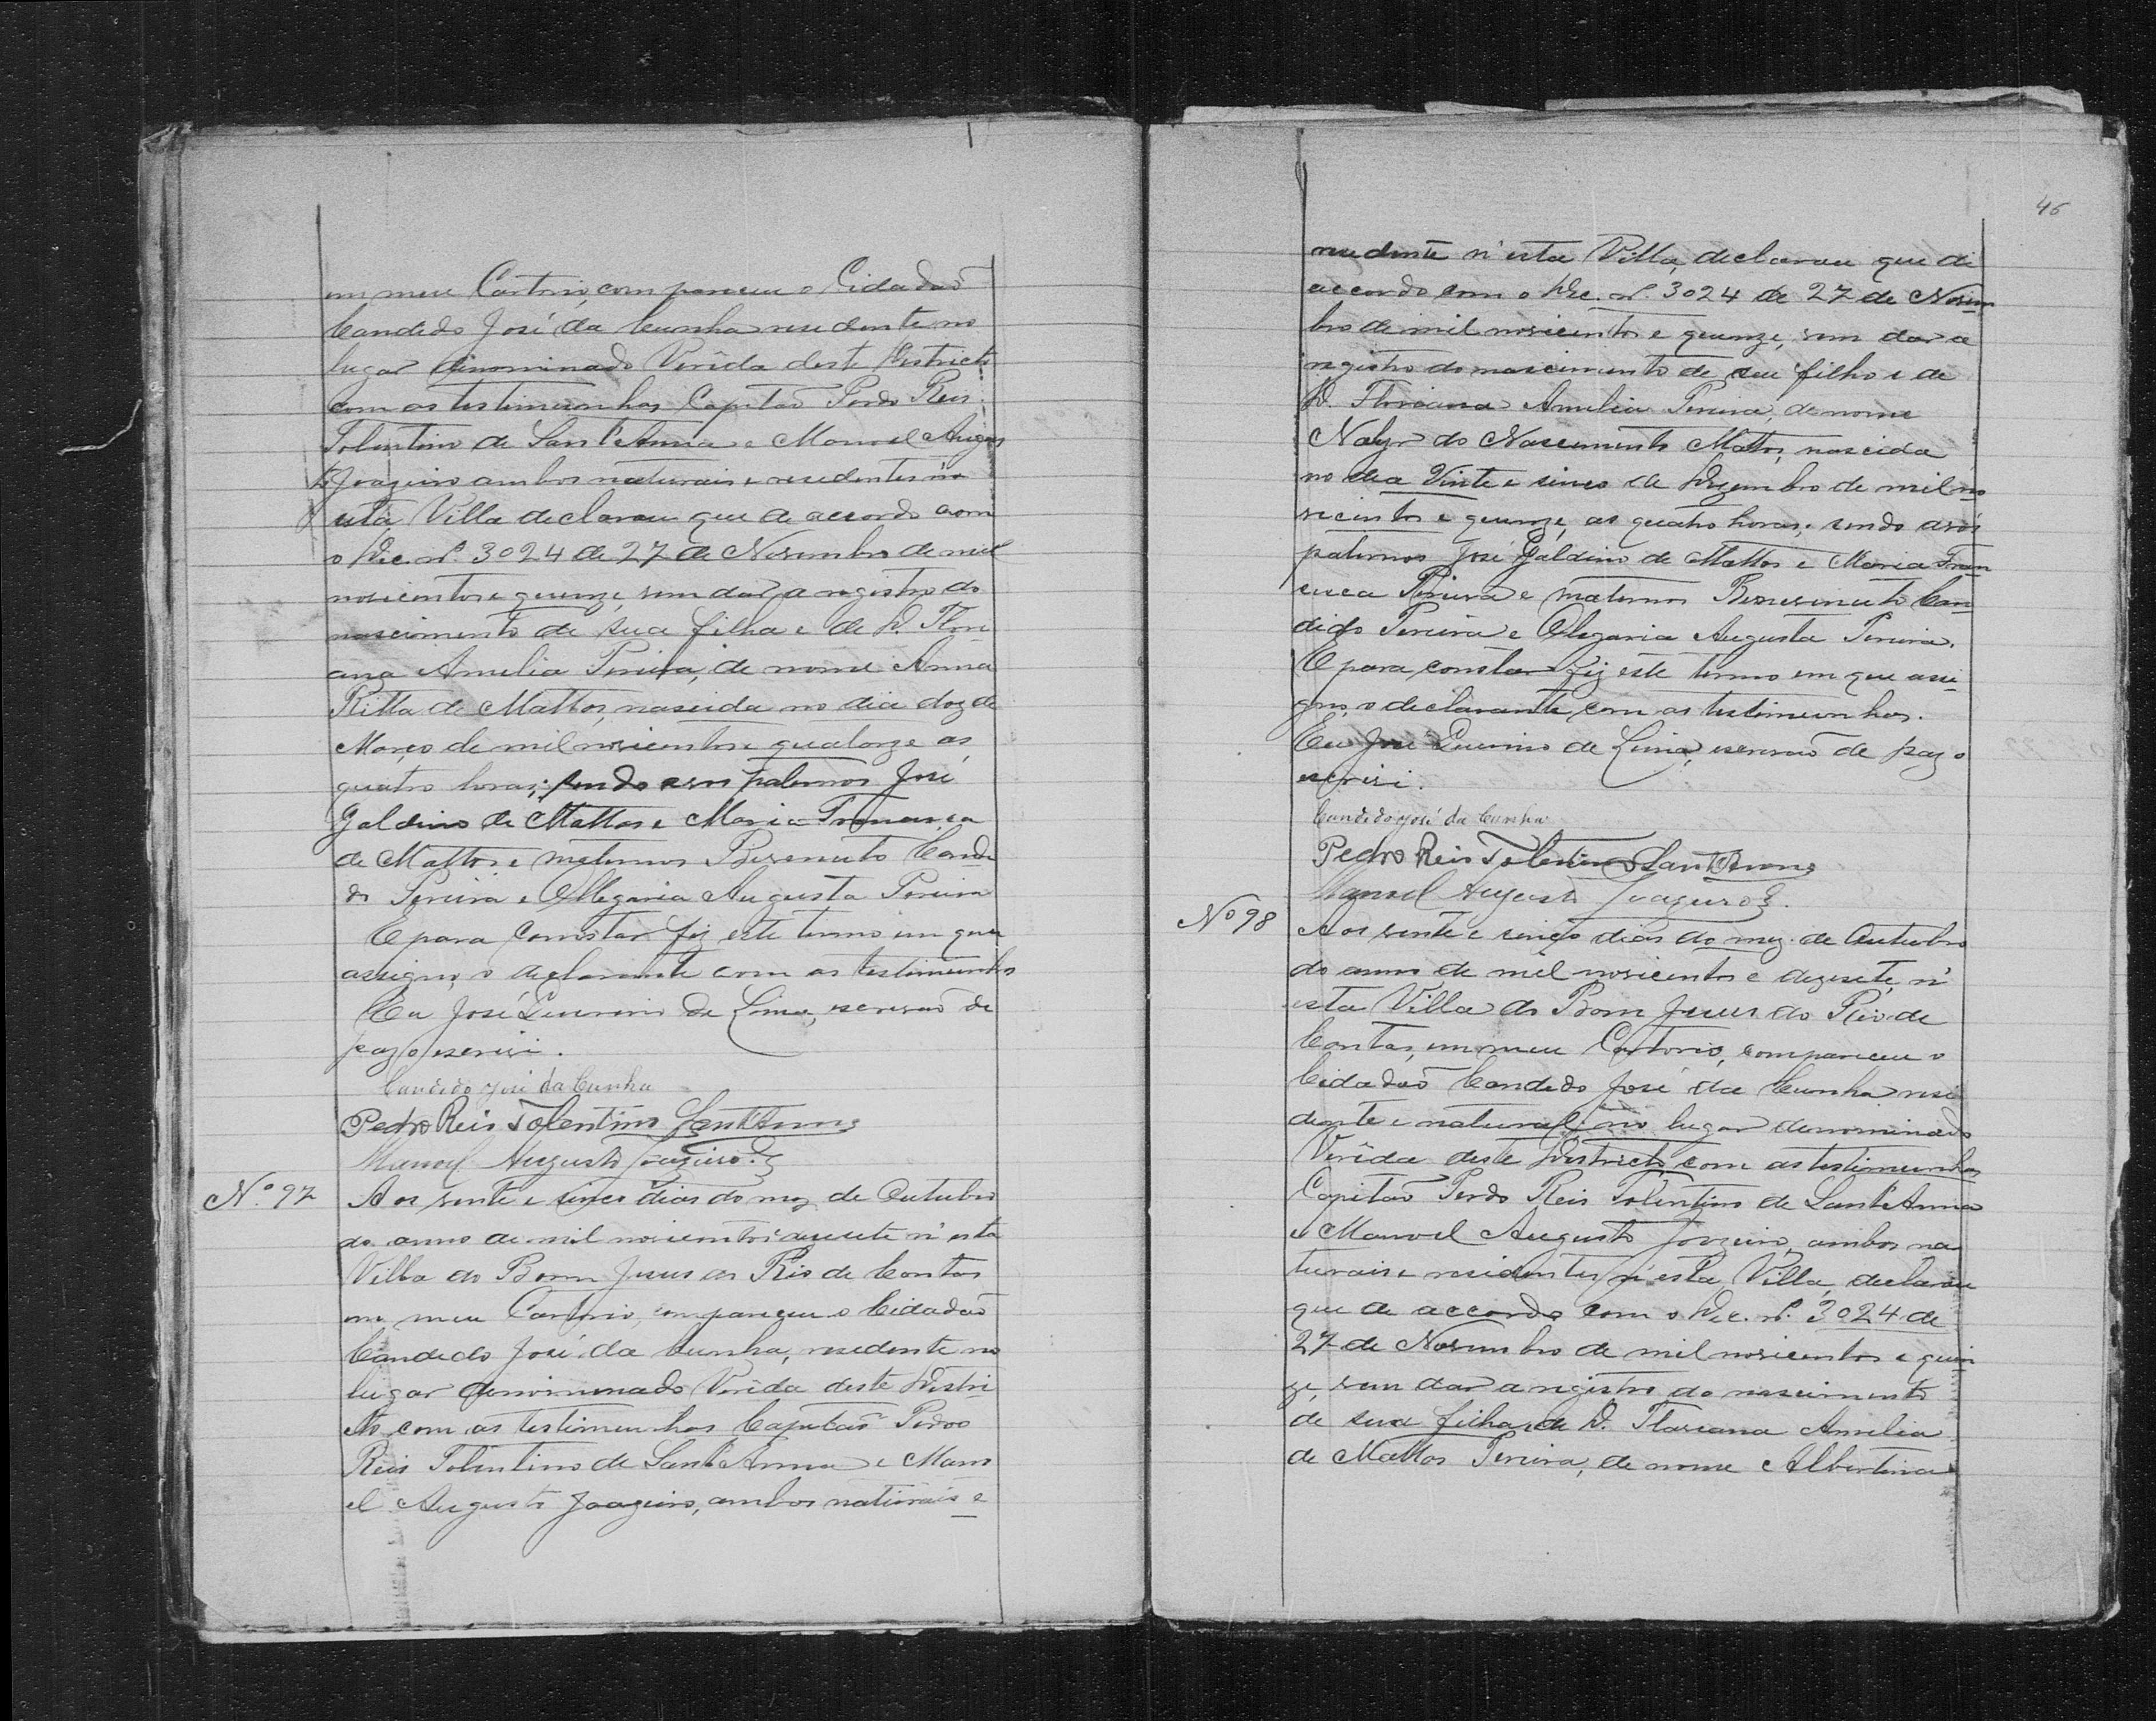 em meu Cartorio, compareceu o Cidadaõ
Candido José da Cunha residente no
lugar denominado Verêda deste Districto
com as testimunhas Capitaõ Pedro Reis
Tolentino de Sant'Anna e Manoel Augus
to Joazeiro ambos naturais e residentes n'es
esta Villa declarou que de accordo com
o Dec. nº. 3024 de 27 de Novembro de mil
novicentos e quenze, vem dar a registro do
nascimento de sua filha e de D. Flori
ana Amelia Pereira, de nome Anna
Ritta de Mattos, nascida no dia doz de
Março de mil novicentos e quatorze as
quatro horas; sendo avos paternos José
Galdino de Mattos e Maria Francisca
de Mattos e maternos Bevenuto Candi
do Pereira e Ollegaria Augusta Pereira
E para constar fiz este termo em que
assigno, o declarante com as testimunhas
Eu José Querino de Lima, escrivaõ de
paz o escrivi.
Candido José da Cunha
Pedro Reis Tolentino Sant'Anna
Manoel Augusto Joazeiro.
Nº. 97
Aos vente e cinco dias do mez de Outubro
do anno de mil novicentos desete n'esta
Villa do Bom Jesus do Rio de Contas
em meu Cartorio, compareceu o Cidadaõ
Candido José da Cunha, residente no
lugar denominado Verêda deste Distri
cto com as testimunhas Capitaõ Pedro
Reis Tolentino de Sant'Anna e Mano
el Augusto Joazeiro, ambos naturais e
46
residente n'esta Villa, declarou que di
accordo com o Dec. nº. 3024 de 27 de Novem
bro de mil novicentos e quenze, vem dar a
registro do nascimento de seu filho e de
D. Floriana Amelia Pereira, de nome
Nascimento Mattos, nascida
no dia Vinte e cinco de Dezembro de mil no
vicentos e quenze, as quatro horas; sendo avós
paternos José Galdino de Mattos e Maria Fran
cisca Pereira e maternos Benevenuto Can
dido Pereira e Olegaria Augusta Pereira.
E para constar fiz este termo em que assi
gno, o declarante com as testimunhas.
Eu José Querino de Lima, escrivaõ de paz o
escrivi.
Candido José da Cunha
Pedro Reis Tolentino Sant'Anna
Manoel Augusto Joazeiro.
Nº 98
Aos vente e cinco dias do mez de Outubro
do anno de mil novicentos e dezesete, n'
esta Villa do Bom Jesus do Rio de
Contas, em meu Cartorio, compareceu o
Cidadaõ Candido José da Cunha resi
dente e natural no lugar denominado
Verêda deste Districto, com as testimunhas
Capitaõ Pedro Reis Tolentino de Sant'Anna
e Manoel Augusto Joazeiro, ambos na
turais e residentes n'esta Villa, declarou
que de accordo com o Dec. nº. 3024 de
27 de Novembro de mil novicentos e quin
ze, vem dar a registro do nascimento
de sua filha e de D. Floriana Amelia
de Mattos Pereira, de nome Albertina